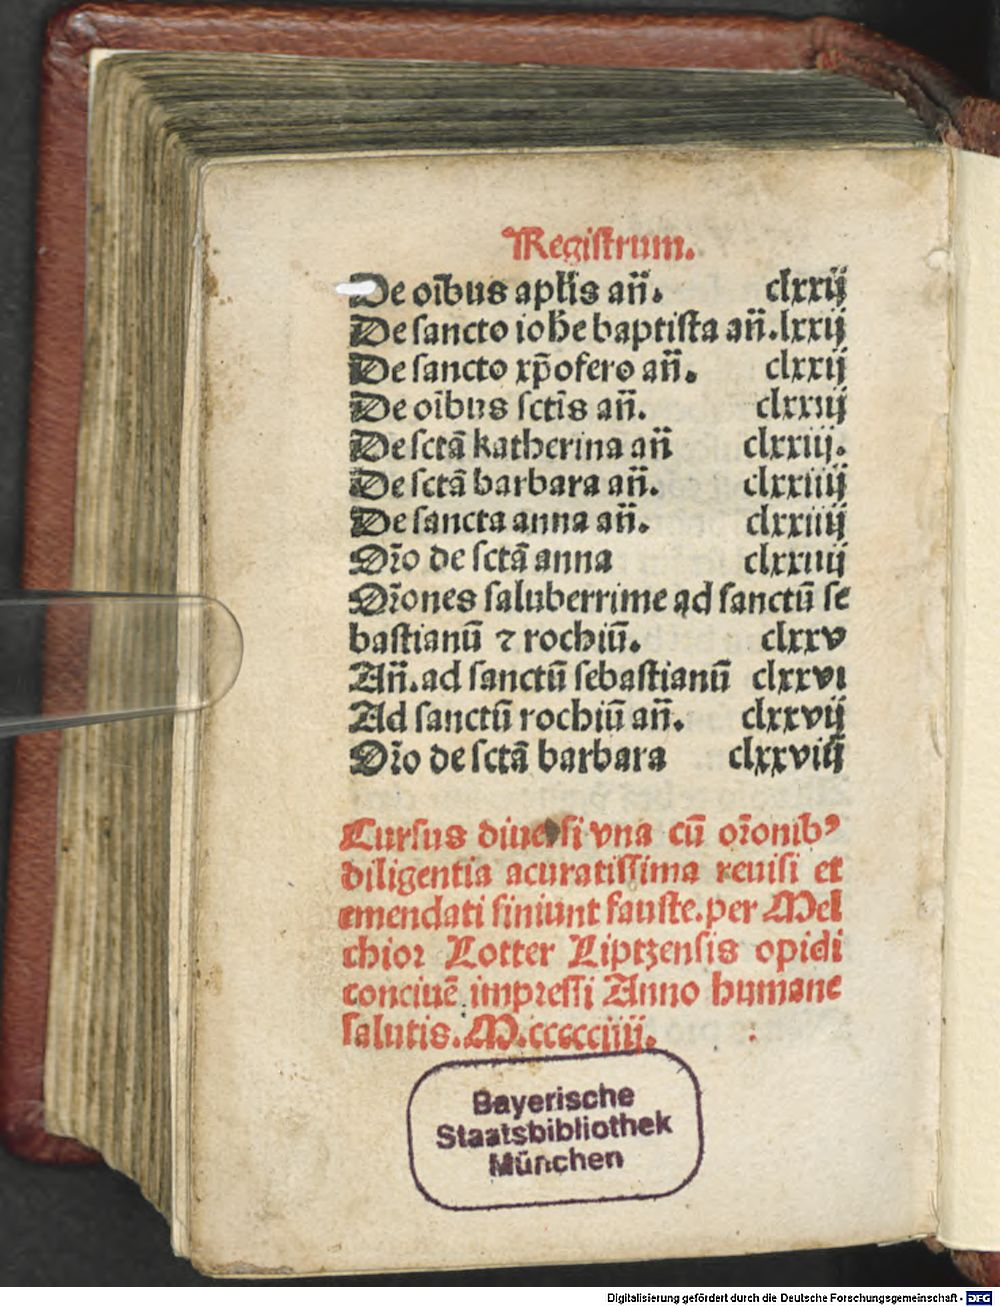 Registrum.
De oĩbus aplis añ. clxxij
De sancto iohe baptista añ. lxxij
De sancto xp̃ofero añ. clxxij
De oĩbus sctĩs añ. clxxiij
De sctã katherina añ clxxiij.
De sctã barbara añ. clxxiiij
De sancta anna añ. clxxiiij
Oꝛ̃o de sctã anna clxxiiij
Oꝛ̃ones saluberrime ad sanctũ se
bastianũ ⁊ rochiũ. clxxv
Añ. ad sanctũ sebastianũ clxxvi
Ad sanctũ rochiũ añ. clxxvij
Oꝛ̃o de sctã barbara clxxviij
Cursus diuersi vna cũ oꝛ̃onibꝰ
diligentia acuratissima reuisi et
emendati finiunt fauste. per Mel
chioꝛ Lotter Liptzensis opidi
conciuẽ impꝛessi Anno humane
salutis. M.ccccciiij.
Bayerische
Staatsbibliothek
München
Digitalisierung gefördert durch die Deutsche Forschungsgemeinschaft - DFG